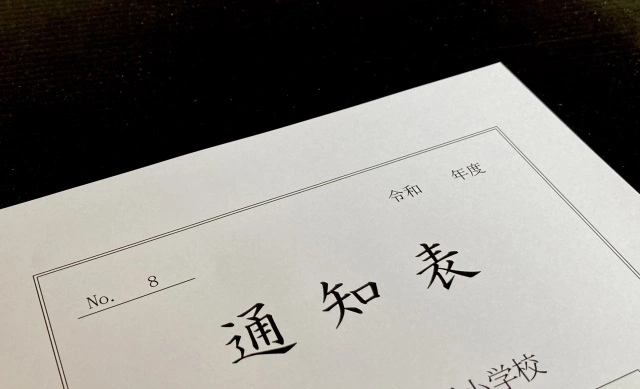 令和 年度
No. 8
通知表
小学校